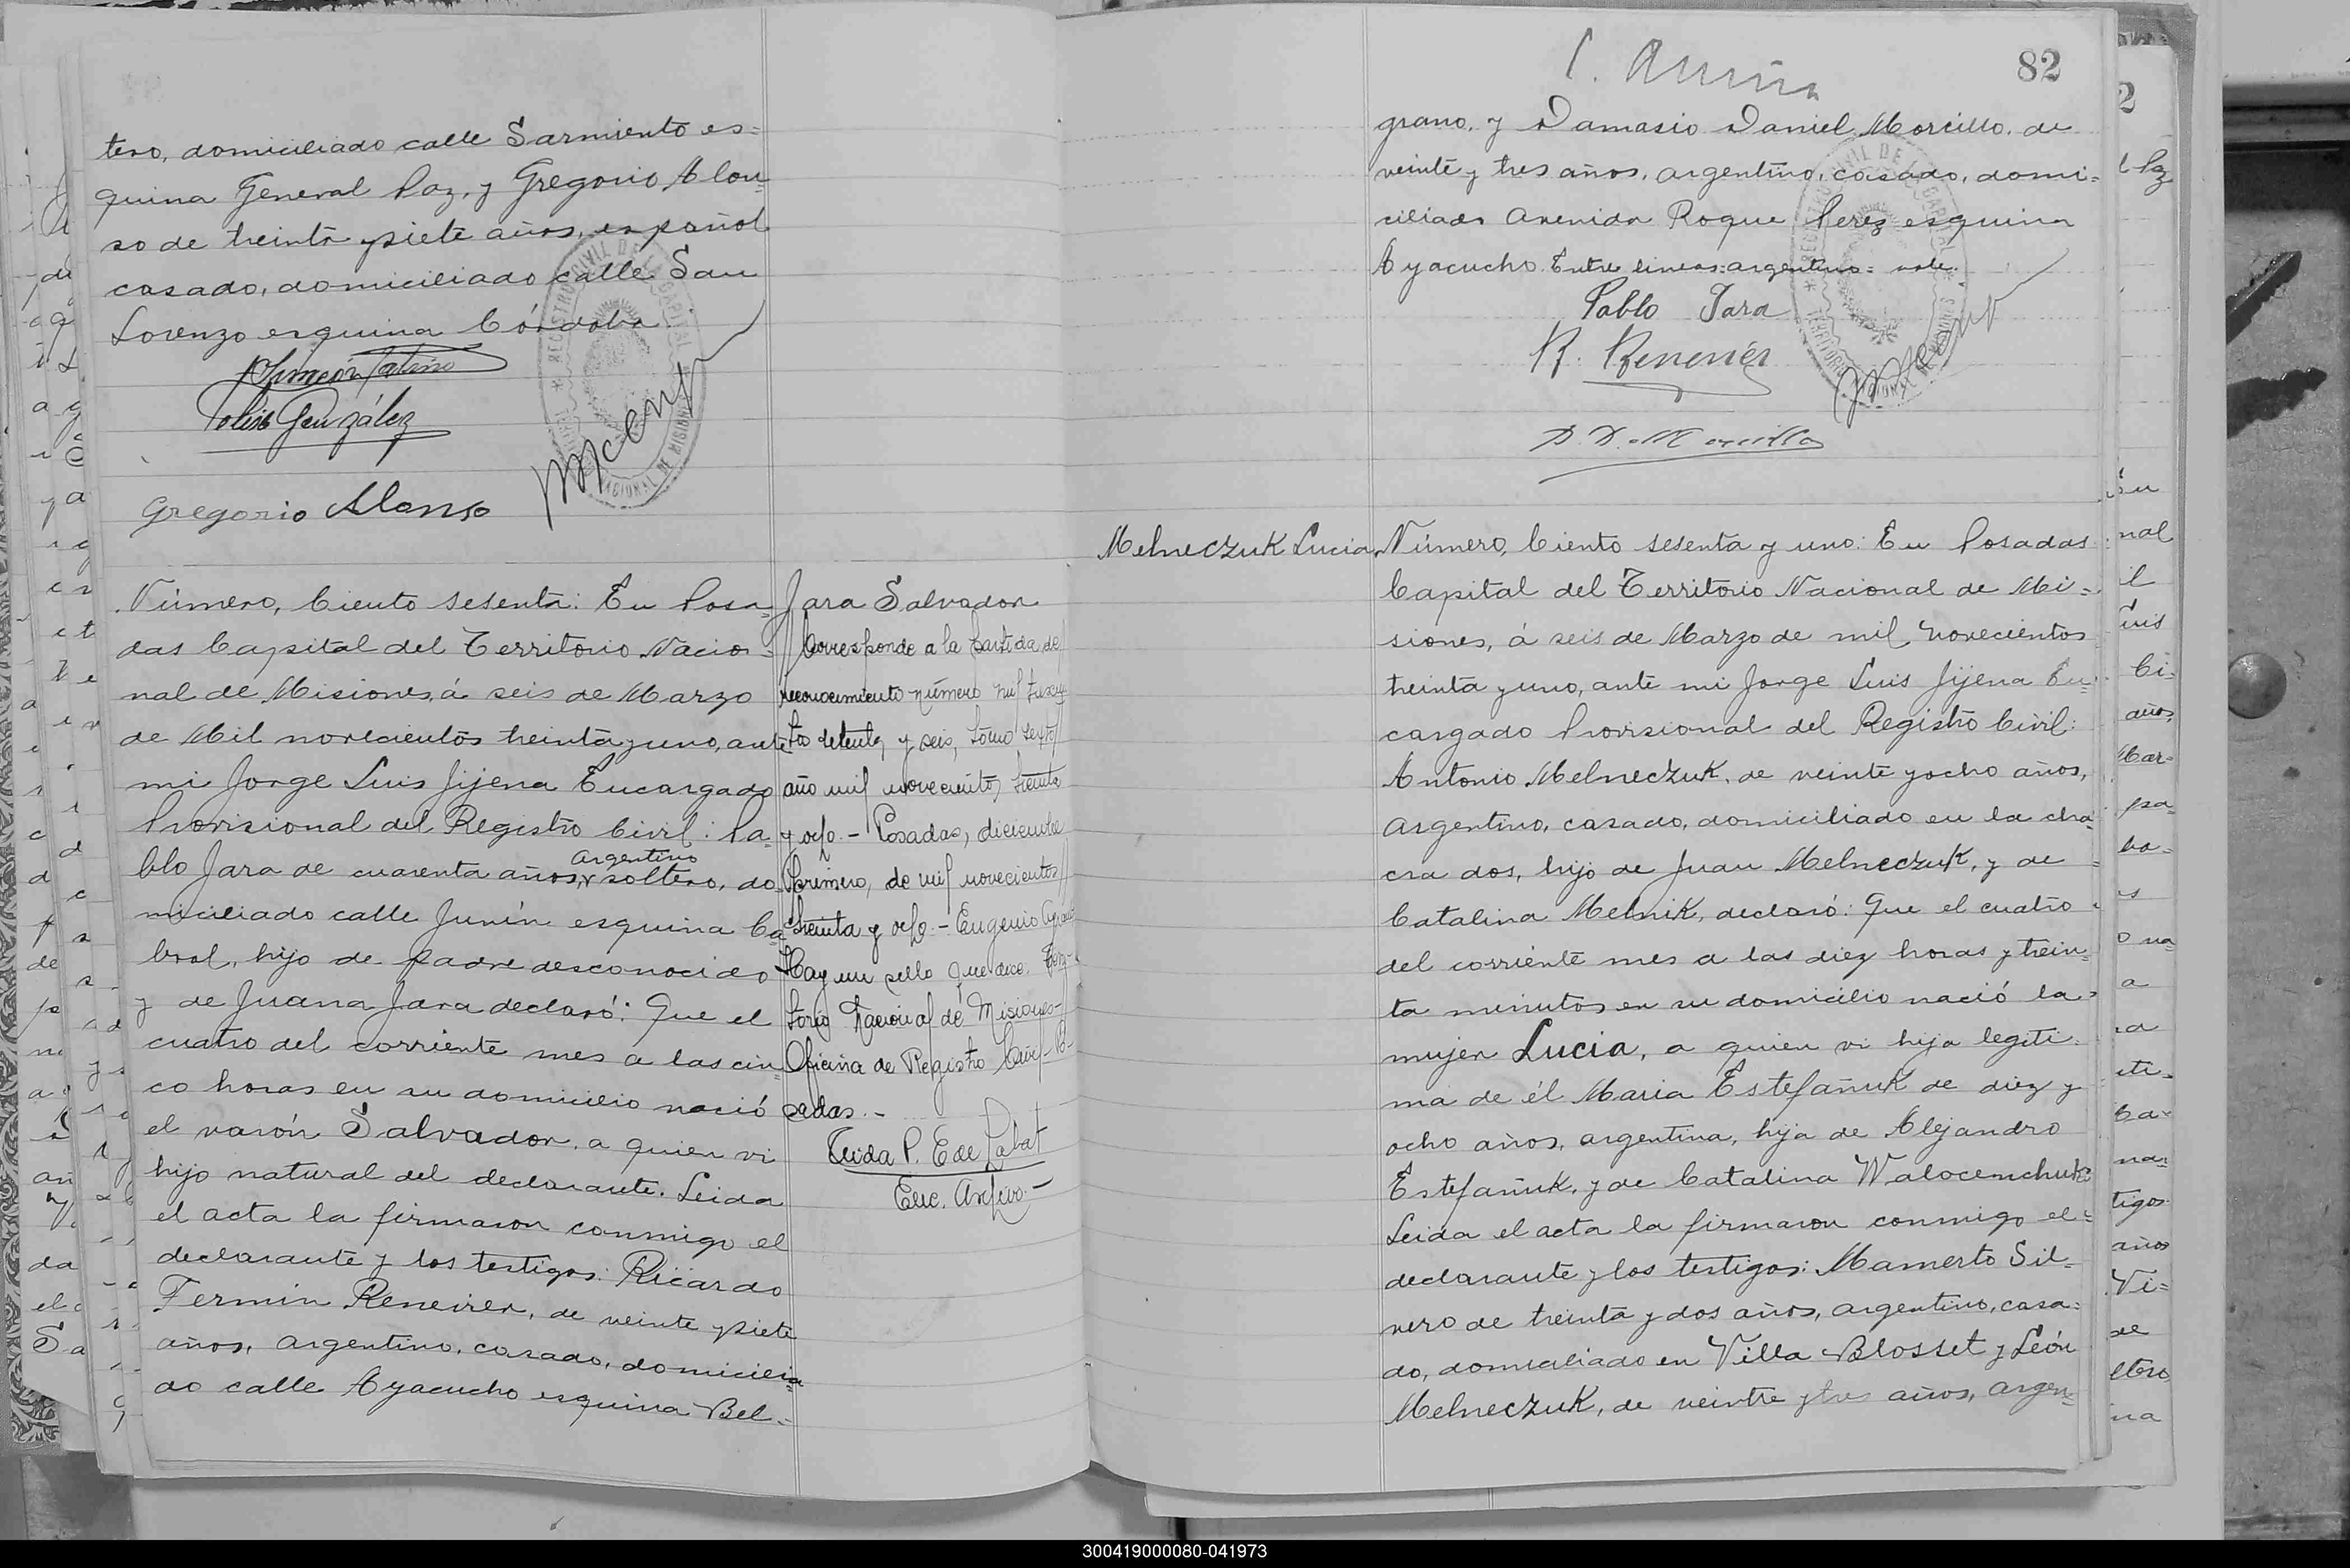 tero, domiciliado calle Sarmiento es=
quina General Paz, y Gregorio Alon
so de treinta y siete años, español
casado, domiciliado calle San
Lorenzo esquina Córdoba
González
Gregorio Alonso
REGISTRO CIVIL DE LA CAPITAL
TERRITORIO NACIONAL DE MISIONES
Número, Ciento sesenta: En Posa=
das Capital del Territorio Nacio=
nal de Misiones, á seis de Marzo
de Mil novecientos treinta y uno, ante
mi Jorge Luis Jijena Encargado
Provisional del Registro Civil: Pa-
argentino
blo Jara de cuarenta años, soltero, do-
miciliado calle Junín esquina Ca
bral, hijo de padre desconocido
y de Juana Jara declaró: Que el
cuatro del corriente mes a las cin
co horas en su domicilio nació
el varón Salvador, a quien vi
hijo natural del declarante. Leida
el acta la firmaron conmigo el
declarante y los testigos: Ricardo
Fermin Reneirer, de veinte y siete
años, argentino, casado, domicilia
do calle Ayacucho esquina Bel=
Jara Salvador
Corresponde a la partida de
reconocimiento número mil trescien
tos setenta y seis, tomo sexto
año mil novecientos treinta
y ocho.- Posadas, diciembre
primero, de mil novecientos
treinta y ocho.- Eugenio
Hay un sello que dice: Terri-
torio Nacional de Misiones-
Oficina de Registro Civil-Po-
sadas.-
P. E de Labat
Enc. Archivo.-
82
grano, y Damasio Daniel Morcillo, de
veinte y tres años, argentino, casado, domi=
ciliado Avenida Roque Perez esquina
Ayacucho. Entre lineas: argentino= vale.
Pablo Jara
R. Reneirer
D. D. Morcillo
REGISTRO CIVIL DE LA CAPITAL
TERRITORIO NACIONAL DE MISIONES
Melneczuk Lucia
Número, Ciento sesenta y uno: En Posadas
Capital del Territorio Nacional de Mi=
siones, á seis de Marzo de mil novecientos
treinta y uno, ante mi Jorge Luis Jijena En=
cargado Provisional del Registro Civil:
Antonio Melneczuk, de veinte y ocho años,
argentino, casado, domiciliado en la cha
cra dos, hijo de Juan Melneczuk, y de
Catalina Melnik, declaró: Que el cuatro
del corriente mes a las diez horas y trein=
ta minutos en su domicilio nació la
mujer Lucia, a quien vi hija legiti=
ma de él Maria Estefañuk de diez y
ocho años, argentina, hija de Alejandro
Estefañuk, y de Catalina Walocenchuk
Leida el acta la firmaron conmigo el=
declarante y los testigos: Mamerto Sil=
vero de treinta y dos años, argentino, casa=
do, domiciliado en Villa Blosset y León
Melneczuk, de veintre y tres años, argen=
300419000080-041973